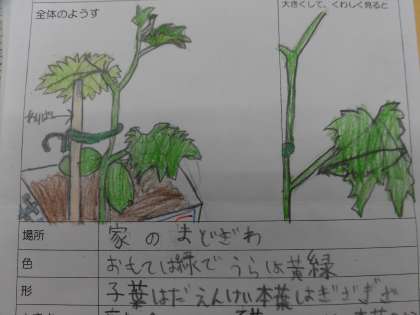 全体のようす
大きくして、くわしく見ると
わりばし
場所 家のまどぎわ
色 おもては緑でうらは黄緑
形 子葉はだえんけい本葉はぎざぎざ